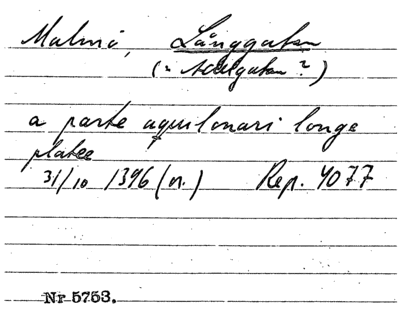 Malmö, Långgatan
(= Adelgatan?)
a parte aquilonari longe
platee
31/10 1396 (or.) Rep. 4077
Nr 5753.